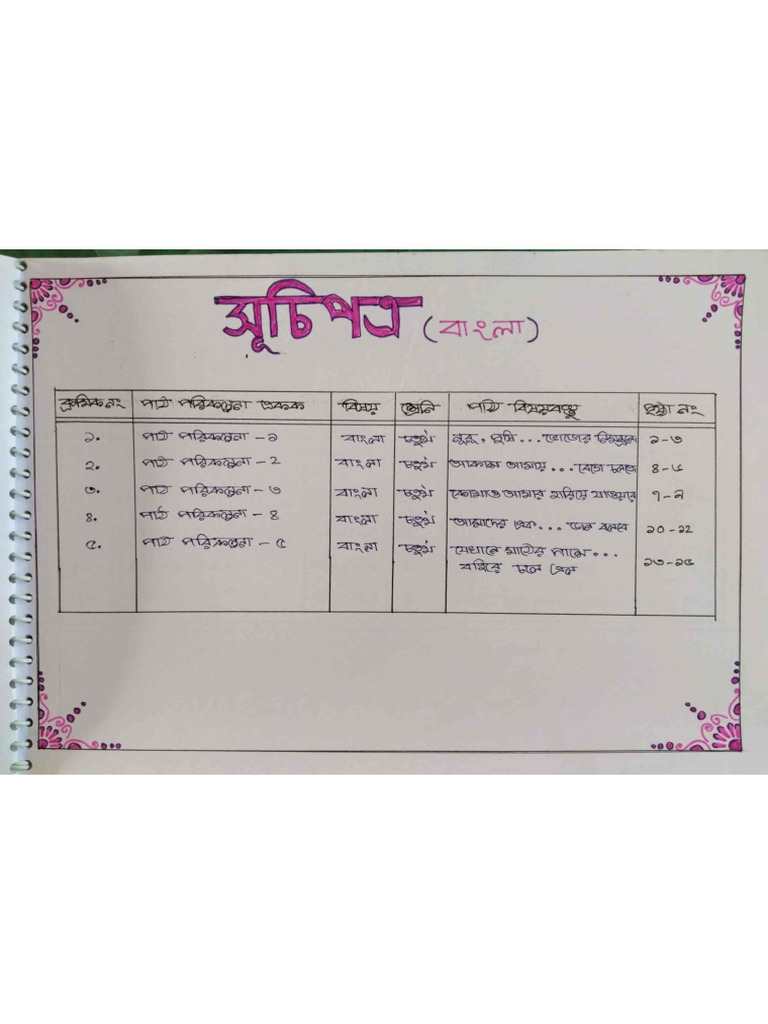 সূচিপত্র (বাংলা)
ক্রমিক নং পাঠ পরিকল্পনা একক বিষয় শ্রেনি পাঠ্য বিষয়বস্তু পৃষ্ঠা নং
১. পাঠ পরিকল্পনা - ১ বাংলা চতুর্থ তুমি... ভোজের ১-৩
২. পাঠ পরিকল্পনা - ২ বাংলা চতুর্থ আকাশ আমায়... বেগে চলতে ৪-৬
৩. পাঠ পরিকল্পনা - ৩ বাংলা চতুর্থ কোথাও আমার হারিয়ে যাওয়ার ৭-৯
৪. পাঠ পরিকল্পনা - ৪ বাংলা চতুর্থ আমাদের এক... বলবে ১০-১২
৫. পাঠ পরিকল্পনা - ৫ বাংলা চতুর্থ যেখানে মাঠের পাশে...
বাইরে চলে গেল ১৩-১৫